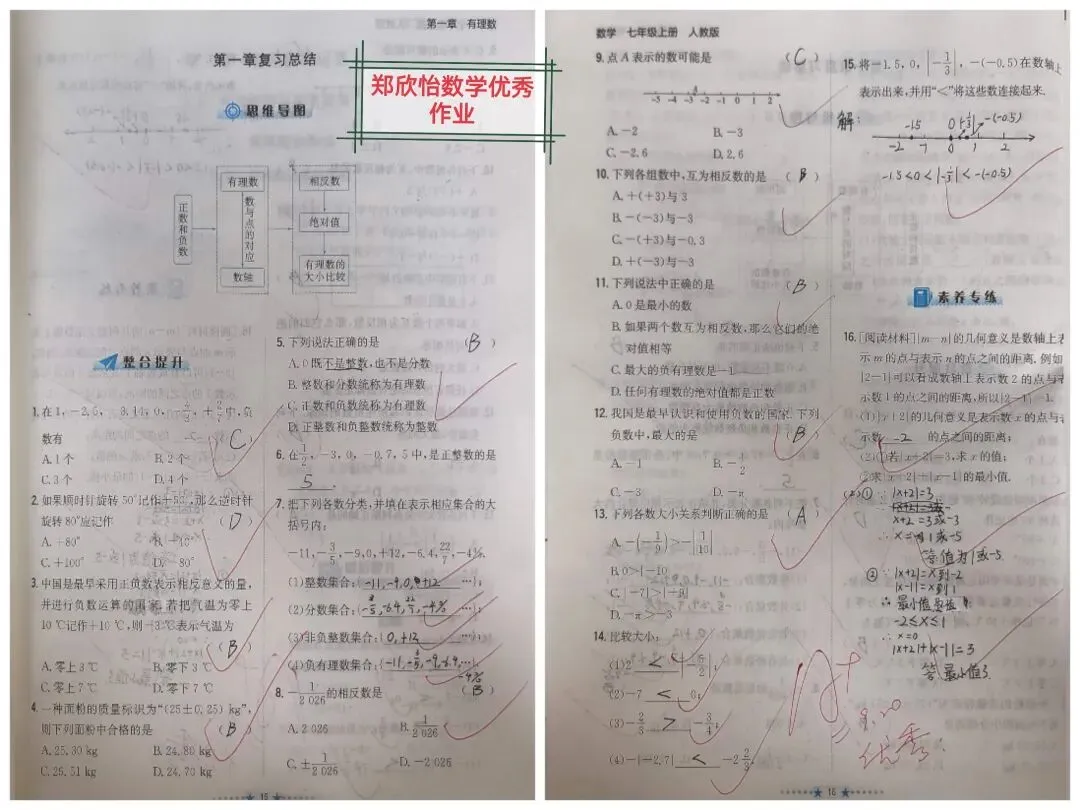 第一章 有理数
第一章复习总结
思维导图
正数和负数
有理数
数与点的对应
数轴
相反数
绝对值
有理数的大小比较
整合提升
数有 C
A.1个 B.2个
C.3个 D.4个
2.如果顺时针旋转50°记作+50°,那么逆时针
旋转80°应记作 (D)
A.+80°
C.+100° D.-80°
3.中国是最早采用正负数表示相反意义的量,
并进行负数运算的国家.若把气温为零上
10℃记作+10℃,则-3℃表示气温为
(B)
A.零上3℃ B.零下3℃
C.零上7℃ D.零下7℃
4.一种面粉的质量标识为“(25±0.25) kg”,
则下列面粉中合格的是 (B)
A.25.30 kg B.24.80 kg
C.25.51 kg D.24.70 kg
5.下列说法正确的是 (B)
A.0既不是整数,也不是分数
B.整数和分数统称为有理数
C.正数和负数统称为有理数
D.正整数和负整数统称为整数
6.在1/2,-3,0,-0.7,5中,是正整数的是
5 .
7.把下列各数分类,并填在表示相应集合的大
括号内:
-11,-3/5,-9,0,+12,-6.4,22/7,-4%.
(1)整数集合:{-11,-9,0,+12 …};
(2)分数集合:{-3/5,-6.4,22/7,-4% …};
(3)非负整数集合:{0,+12 …};
(4)负有理数集合:{-11,-3/5,-9,-6.4, …}.
-4%
8.-1/2 026的相反数是 (B)
A.2 026 B.1/2 026
C.±1/2 026 D.-2 026
15
郑欣怡数学优秀
作业
数学 七年级上册 人教版
9.点A表示的数可能是 (C)
-5 -4 -3 -2 -1 0 1 2
A.-2 B.-3
C.-2.6 D.2.6
10.下列各组数中,互为相反数的是 (B)
A.+(+3)与3
B.-(-3)与-3
C.-(+3)与-0.3
D.+(-3)与-3
11.下列说法中正确的是 (B)
A.0是最小的数
B.如果两个数互为相反数,那么它们的绝
对值相等
C.最大的负有理数是-1
D.任何有理数的绝对值都是正数
12.我国是最早认识和使用负数的国家.下列
负数中,最大的是 (B)
A.-1 B.-1/2
C.-3 D.-π
13.下列各数大小关系判断正确的是 (A)
A.-(-1/9)>-|1/10|
B.0>|-10|
D.-π>-3
14.比较大小:
(2)-7 < 0;
(3)-2/3 > -3/4;
(4)-|-2.7| < -2 2/3.
15.将-1.5,0,|-1/3|,-(-0.5)在数轴上
表示出来,并用“<”将这些数连接起来.
解:
-1.5 0 |-1/3| -(-0.5)
-2 -1 0 1 2
-1.5<0<|-1/3|<-(-0.5)
素养专练
16.[阅读材料]|m-n|的几何意义是数轴上表
示m的点与表示n的点之间的距离.例如
|2-1|可以看成数轴上表示数2的点与表
示数1的点之间的距离,所以|2-1|=1.
(1)|x+2|的几何意义是表示数x的点与表
示数 -2 的点之间的距离;
(2)①若|x+2|=3,求x的值;
②求|x+2|+|x-1|的最小值.
(2)①∵|x+2|=3
x+2=3或-3
∴x=1或-5
答:值为1或-5.
②∵|x+2|=x到-2
|x-1|=x到1
-2≤x≤1
∴x=0
|x+2|+|x-1|=3
答:最小值3.
9.20
优秀
16